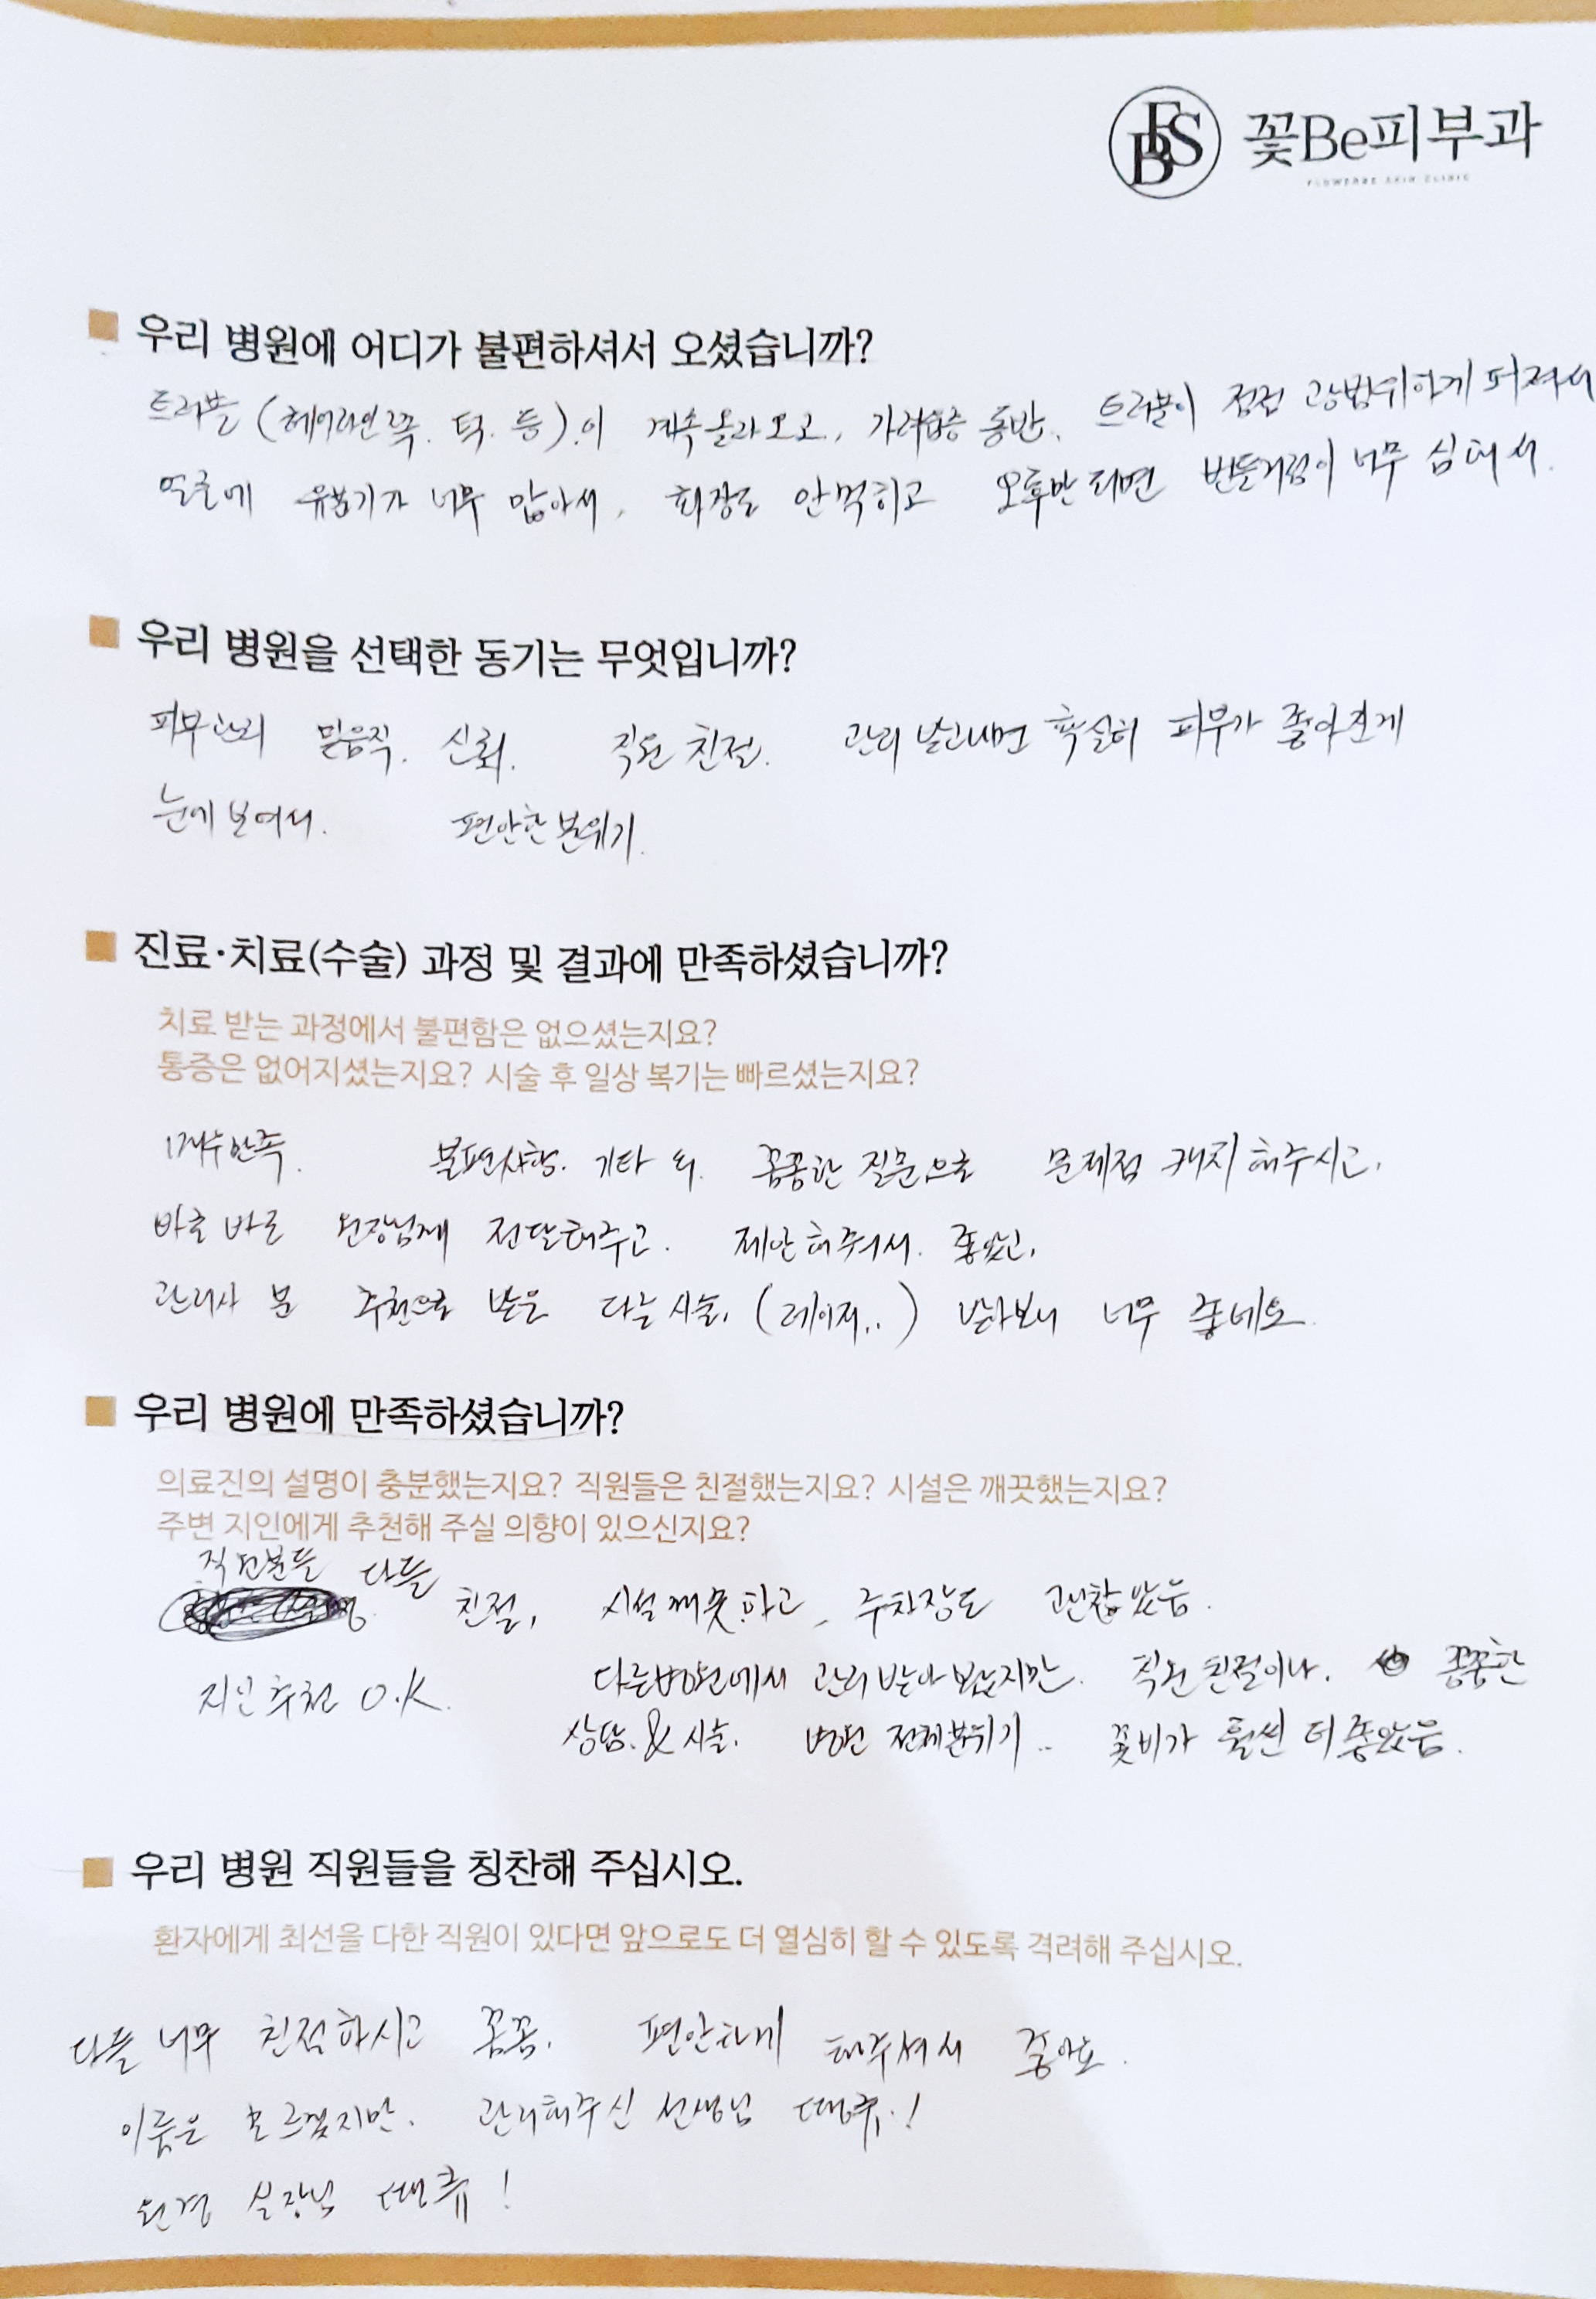 FBS 꽃Be피부과
FLOWERBE SKIN CLINIC
우리 병원에 어디가 불편하셔서 오셨습니까?
트러블 (헤어라인쪽. 턱. 등).이 계속 올라오고, 가려움증 동반. 트러블이 점점 광범위하게 퍼져서
얼굴에 유분기가 너무 많아서, 화장도 안먹히고 오후만 되면 번들거림이 너무 심해서.
우리 병원을 선택한 동기는 무엇입니까?
피부관리 믿음직. 신뢰. 직원 친절. 관리 받고나면 확실히 피부가 좋아진게
눈에 보여서. 편안한 분위기.
진료·치료(수술) 과정 및 결과에 만족하셨습니까?
치료 받는 과정에서 불편함은 없으셨는지요?
통증은 없어지셨는지요? 시술 후 일상 복기는 빠르셨는지요?
불편사항. 기타 등. 꼼꼼한 질문으로 문제점 캐치해주시고,
바로바로 원장님께 전달해주고. 제안해줘서. 좋았고,
관리사 분 추천으로 받은 다른 시술, (레이저..) 받아보니 너무 좋네요.
우리 병원에 만족하셨습니까?
의료진의 설명이 충분했는지요? 직원들은 친절했는지요? 시설은 깨끗했는지요?
주변 지인에게 추천해 주실 의향이 있으신지요?
직원분들 다들
친절, 시설깨끗하고, 주차장도 괜찮았음.
지인추천 O.K. 다른병원에서 관리 받아 봤는지만. 직원친절이나. 꼼꼼한
상담.&시술. 병원 전체분위기.. 꽃비가 훨씬 더 좋았음.
우리 병원 직원들을 칭찬해 주십시오.
환자에게 최선을 다한 직원이 있다면 앞으로도 더 열심히 할 수 있도록 격려해 주십시오.
다들 너무 친절하시고 꼼꼼. 편안하게 해주셔서 좋아요.
이름은 모르겠지만. 관리해주신 선생님 땡큐.!
원경 실장님 땡큐!